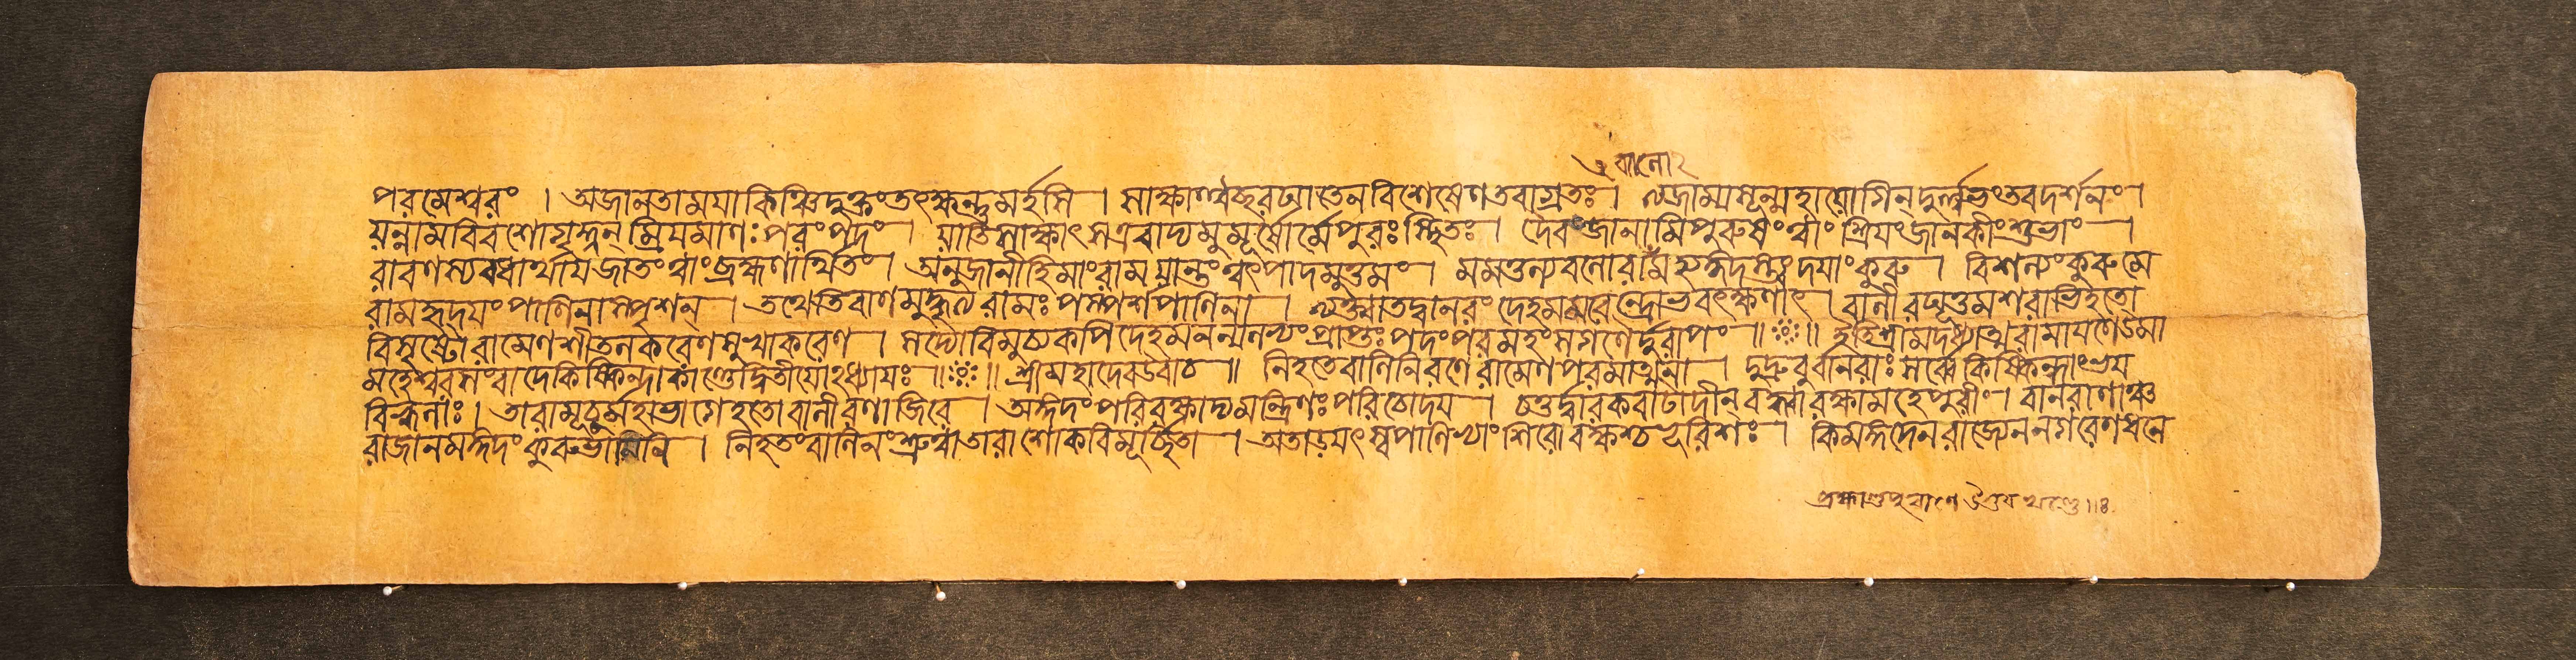 এ বানো২
পরমেশ্বরং । অজানতাময়াকিঞ্চিদুক্তংতৎক্ষন্তুমর্হসি । সাক্ষাত্ত্বচ্ছরঘাতেনবিশেষেণতবাগ্রতঃ । ত্যজাম্যসূন্মহাযোগিন্দুর্ল্লভংতবদর্শনং ।
যন্নামবিবশোগৃহ্নন্ম্রিয়মাণঃপরংপদং । যাতিসাক্ষাৎসএবাদ্যমুমূর্ষোর্মেপুরঃস্থিতঃ । দেবংজানামিপুরুষংত্বাংশ্রিয়ংজানকীংশুভাং ।
রাবণস্যবধার্থায়জাতংত্বাংব্রহ্মণার্থিতং । অনুজানীহিমাংরামযান্তংত্বৎপাদমুত্তমং । মমতুল্যবলেরামঅঙ্গদেত্বংদয়াংকুরু । বিশল্যংকুরুমে
রামহৃদয়ংপাণিনাস্পৃশন্ । তথেতিবাণমুদ্ধৃত্যরামঃপস্পর্শপাণিনা । ত্যক্ত্বাতদ্বানরংদেহমমরেন্দ্রোভবৎক্ষণাৎ । বালীরঘূত্তমশরাভিহতো
বিমৃষ্টোরামেণশীতলকরেণসুখাকরেণ । সদ্যোবিমুচ্যকপিদেহমনন্যলভ্যংপ্রাপ্তঃপদংপরমহংসগণৈর্দুরাপং ॥ ॥ ইতিশ্রীমদধ্যাত্মরামায়ণেউমা
মহেশ্বরসংবাদেকিষ্কিন্ধাকাণ্ডেদ্বিতীয়োঽধ্যায়ঃ ॥ ॥ শ্রীমহাদেবউবাচ ॥ নিহতেবালিনিরণেরামেণপরমাত্মনা । দুদ্রুবুর্বানরাঃসর্ব্বেকিষ্কিন্ধাংভয়
বিহ্বলাঃ । তারামূচুর্মহাভাগেহতোবালীরণাজিরে । অঙ্গদংপরিরক্ষাদ্যমন্ত্রিণঃপরিচোদয় । চতুর্দ্বারকবাটাদীন্বদ্ধ্বারক্ষামহেপুরীং । বানরাণাঞ্চ
রাজানমঙ্গদংকুরুভামিনি । নিহতংবালিনংশ্রুত্বাতারাশোকবিমূর্চ্ছিতা । অতাড়য়ৎস্বপাণিভ্যাংশিরোবক্ষশ্চভূরিশঃ । কিমঙ্গদেনরাজ্যেননগরেণধনে
ব্রহ্মাণ্ডপুরাণে উত্তর খণ্ডে ॥ঃ